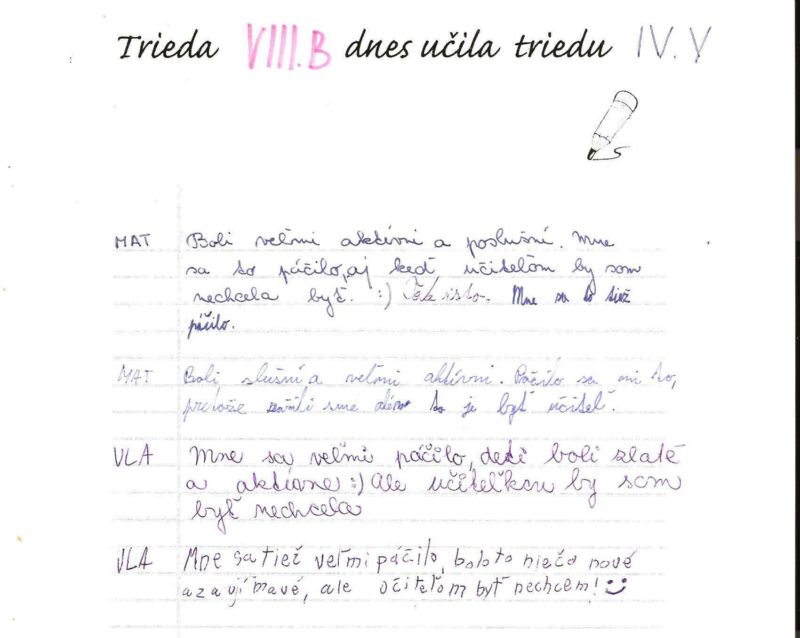 Trieda VIII.B dnes učila triedu IV. V
MAT Boli veľmi aktívni a poslušní. Mne
sa to páčilo, aj keď učiteľom by som
nechcela byť. :) Tak isto. Mne sa to tiež
páčilo.
MAT Boli slušní a veľmi aktívni. Páčilo sa mi to,
pretože zažili sme to je byť učiteľ.
VLA Mne sa veľmi páčilo, deti boli zlaté
a aktívne :) Ale učiteľkou by som
byť nechcela
VLA Mne sa tiež veľmi páčilo, bolo to niečo nové
a zaujímavé, ale učiteľom byť nechcem!